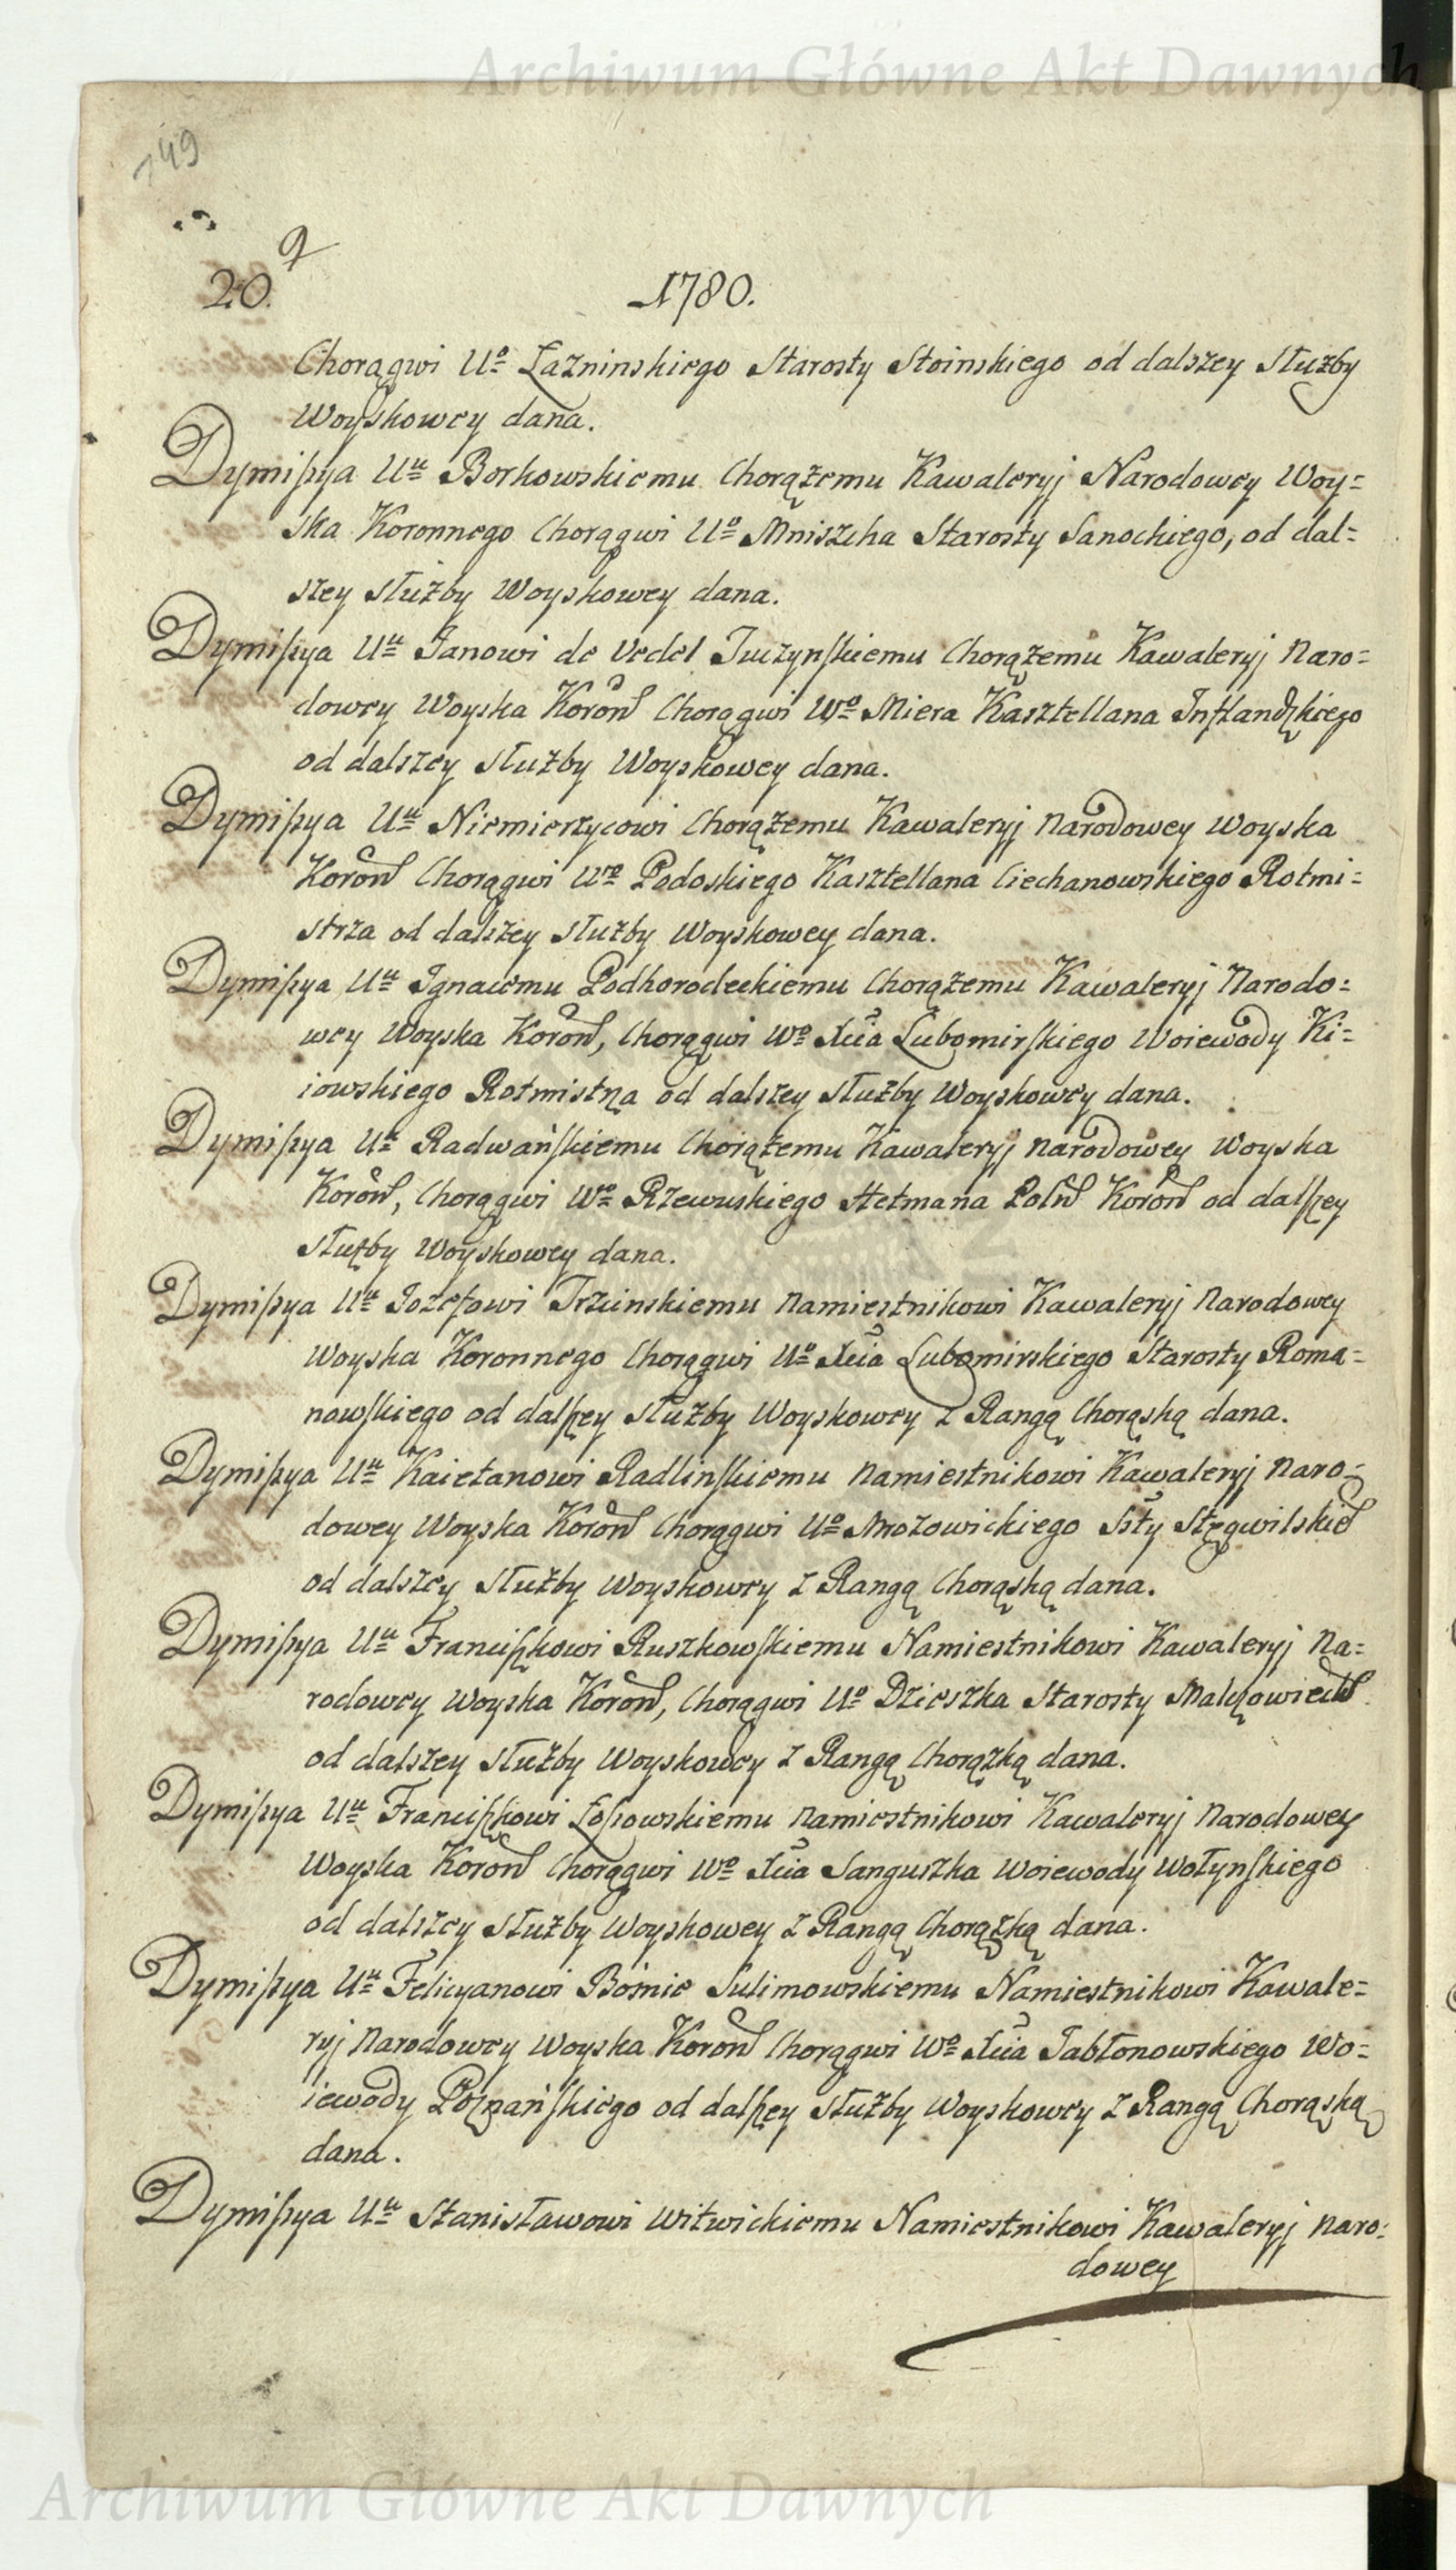 Archiwum Główne Akt Dawnych
149
9
20.
1780.
Chorągwi Uo Łazninskiego Starosty Stoinskiego od dalszey Służby
Woyskowey dana.
Dymissya Uu Borkowskiemu Chorążemu Kawaleryj Narodowey Woy=
ska Koronnego Chorągwi Uo Mniszcha Starosty Sanockiego, od dal=
szey służby Woyskowey dana.
Dymissya Uu Janowi de Vedel Tuczynskiemu Chorążemu Kawaleryj Naro=
dowey Woyska Koron Chorągwi Wo Miera Kasztellana Inflandzkiego
od dalszey służby Woyskowey dana.
Dymissya Uu Niemierzycowi Chorążemu Kawaleryj Narodowey Woyska
Koron Chorągwi Wo Podoskiego Kasztellana Ciechanowskiego Rotmi=
strza od dalszey służby Woyskowey dana.
Dymissya Uu Ignacemu Podhorodeckiemu Chorążemu Kawaleryj Narodo=
wey Woyska Koron, Chorągwi Wo Xcia Lubomirskiego Woiewody Ki=
iowskiego Rotmistrza od dalszey służby Woyskowey dana.
Dymissya Uu Radwańskiemu Chorążemu Kawaleryj Narodowey Woyska
Koron, Chorągwi Wo Rzewuskiego Hetmana Poln Koron od dalszey
służby Woyskowey dana.
Dymissya Uu Jozefowi Trzcinskiemu Namiestnikowi Kawaleryj Narodowey
Woyska Koronnego Chorągwi Uo Xcia Lubomirskiego Starosty Roma=
nowskiego od dalszey służby Woyskowey z Rangą Chorąską dana.
Dymissya Uu Kaietanowi Radlinskiemu Namiestnikowi Kawaleryj Naro=
dowey Woyska Koron Chorągwi Uo Mrozowickiego Stty Stęgwilskie
od dalszey służby Woyskowey z Rangą Chorąską dana.
Dymissya Uu Franciszkowi Ruszkowskiemu Namiestnikowi Kawaleryj Na=
rodowey Woyska Koron, Chorągwi Uo Dzieszka Starosty
od dalszey służby Woyskowey z Rangą Chorązką dana.
Dymissya Uu Franciszkowi Łossowskiemu Namiestnikowi Kawaleryj Narodowey
Woyska Koron Chorągwi Wo Xcia Sanguszka Woiewody Wołynskiego
od dalszey służby Woyskowey z Rangą Chorążką dana.
Dymissya Uu Felicyanowi Bożnie Sulimowskiemu Namiestnikowi Kawale=
ryj Narodowey Woyska Koron Chorągwi Wo Xcia Jabłonowskiego Wo=
iewody Poznańskiego od dalszey służby Woyskowey z Rangą Chorąską
dana.
Dymissya Uu Stanisławowi Witwickiemu Namiestnikowi Kawaleryj Naro=
dowey
Archiwum Główne Akt Dawnych